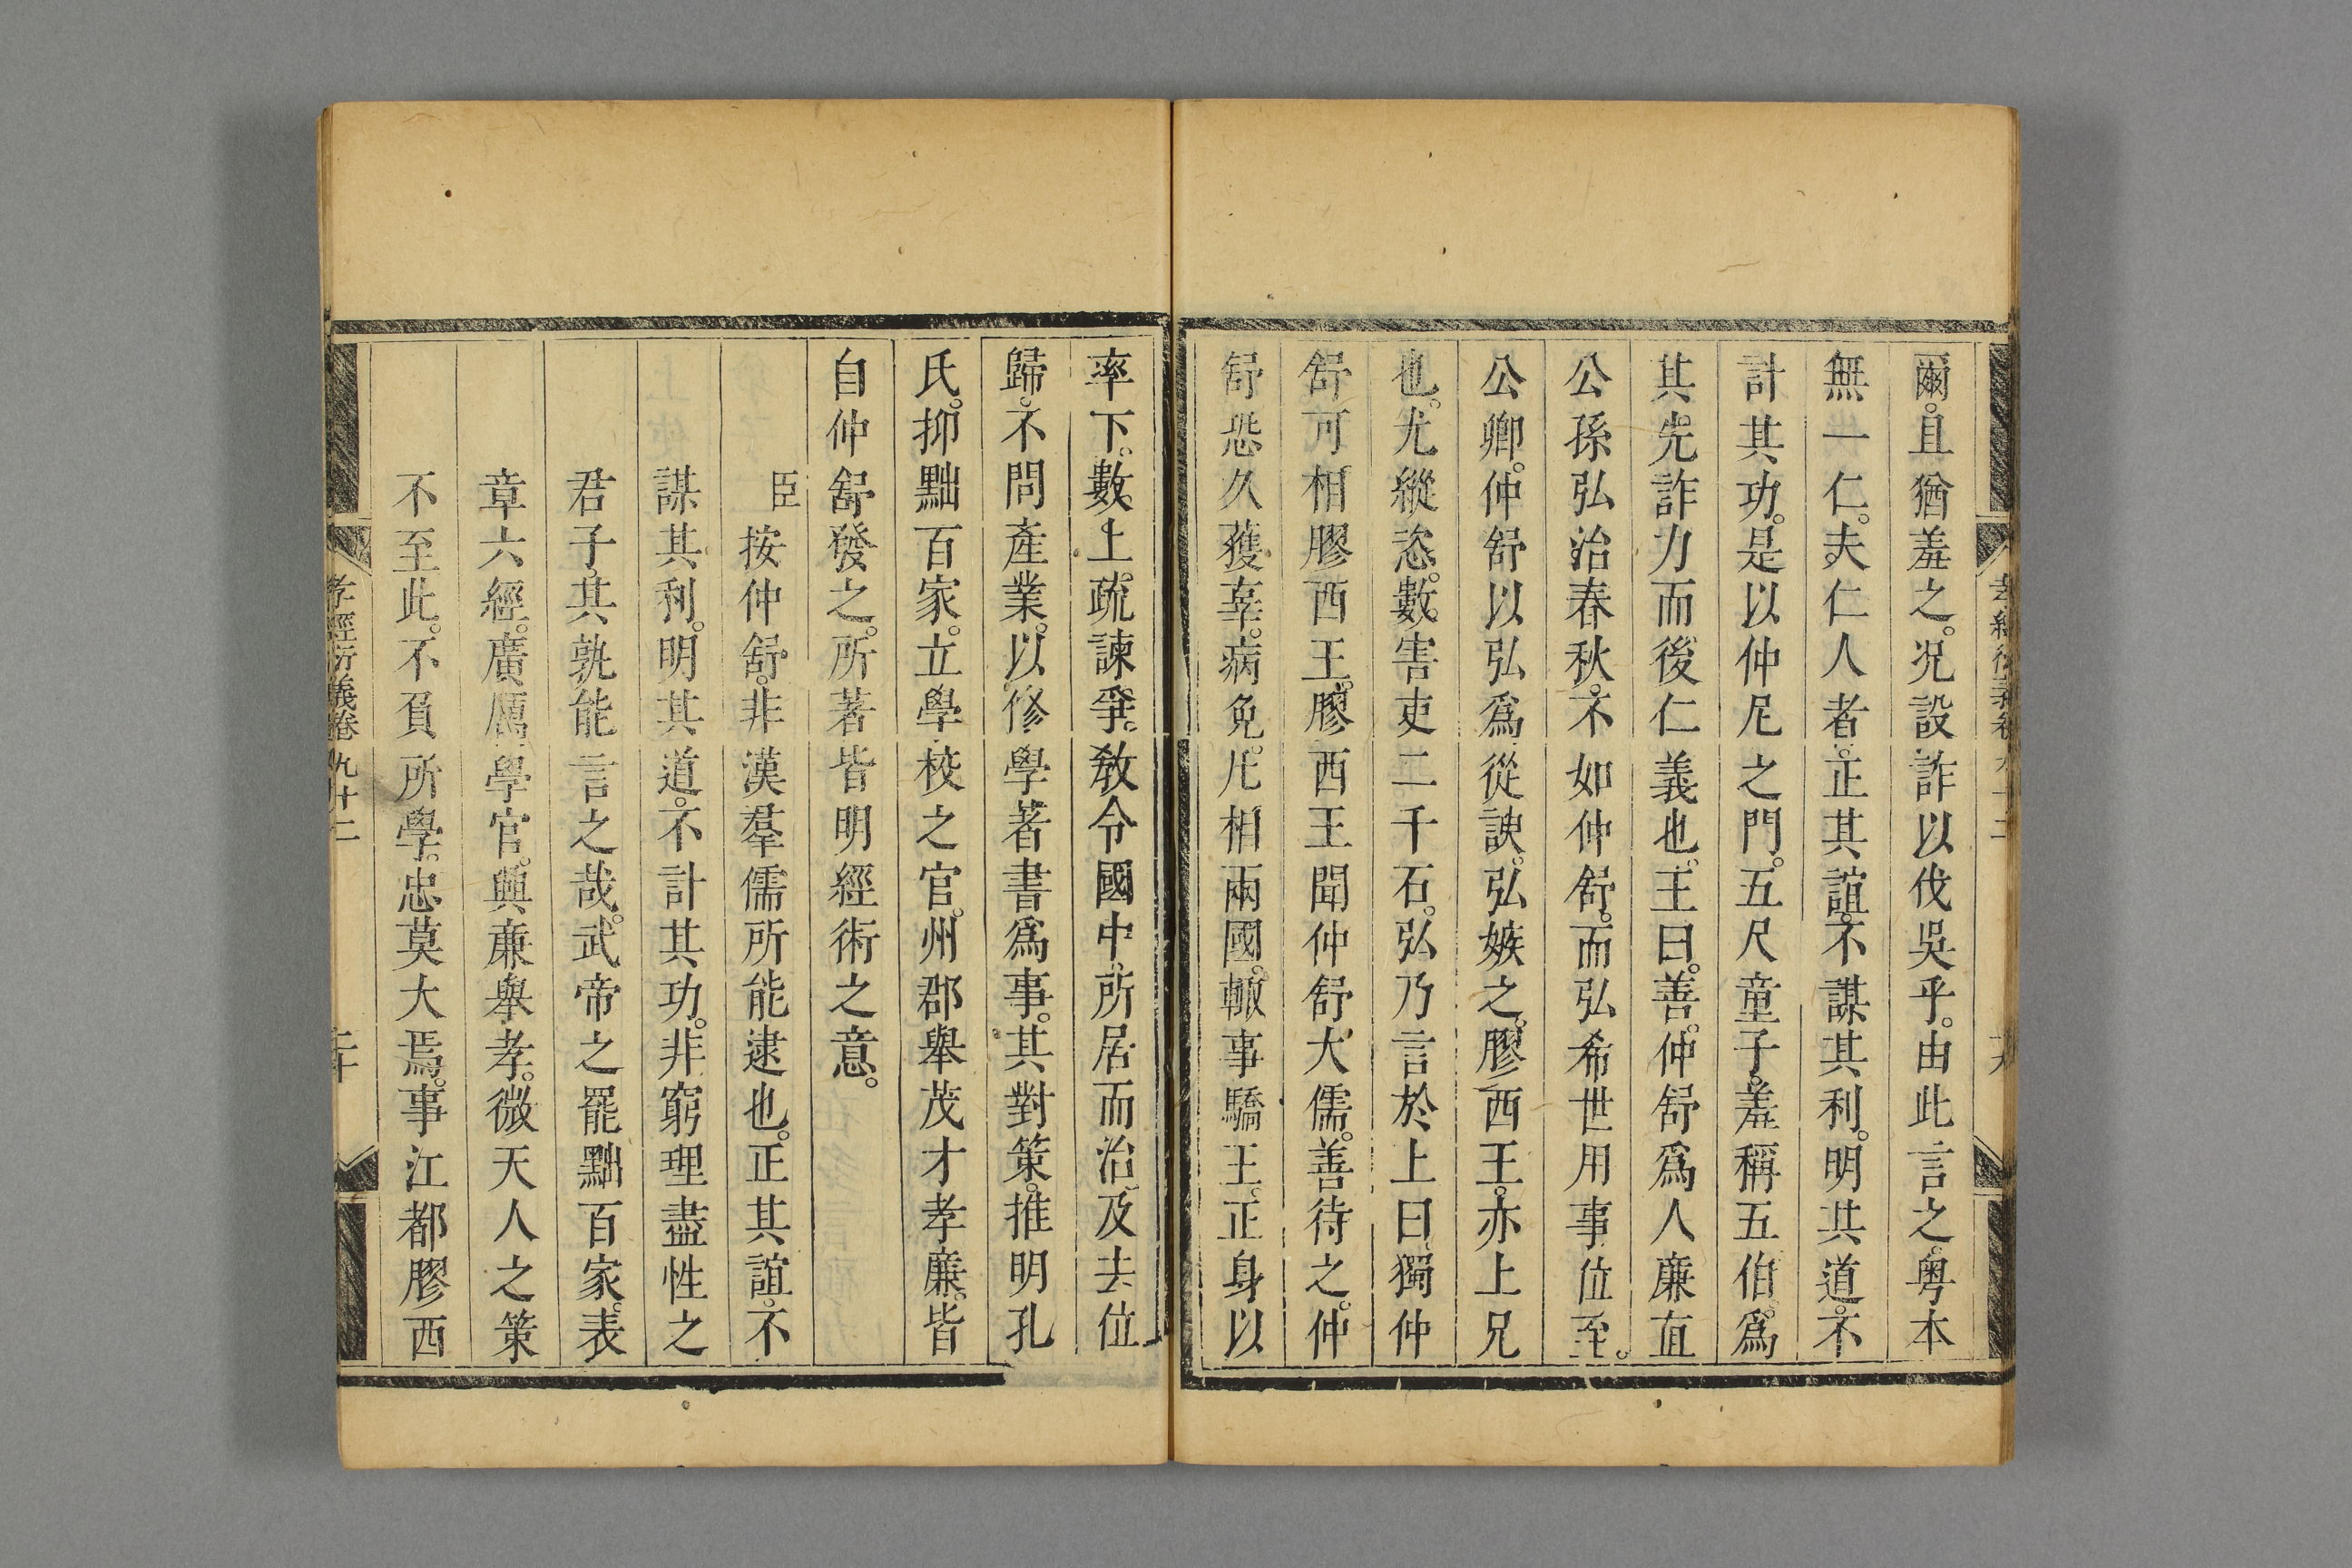 爾。且猶羞之。况設詐以伐吳乎。由此言之。粤本
無一仁。夫仁人者。正其誼。不謀其利。明其道。不
計其功。是以仲尼之門。五尺童子。羞稱五伯。爲
其先詐力而後仁義也。王曰。善。仲舒爲人廉直
公孫弘治春秋。不如仲舒。而弘希世用事位至。
公卿。仲舒以弘爲從諛。弘嫉之。膠西王。亦上兄
也。尤縱恣。數害吏二千石。弘乃言於上曰。獨仲
舒可相膠西王。膠西王聞仲舒大儒。善待之。仲
舒恐久獲辠。病免。凡相兩國。輙事驕王。正身以
率下。數上疏諫爭。敎令國中。所居而治。及去位
歸。不問產業。以修學著書爲事。其對策。推明孔
氏。抑黜百家。立學校之官。州郡舉茂才孝廉。皆
自仲舒發之。所著皆明經術之意。
臣按仲舒。非漢羣儒所能逮也。正其誼。不
謀其利。明其道。不計其功。非窮理盡性之
君子。其孰能言之哉。武帝之罷黜百家。表
章六經。廣厲學官。興廉舉孝。微天人之策
不至此。不負所學。忠莫大焉。事江都膠西
孝經衍義卷九十二